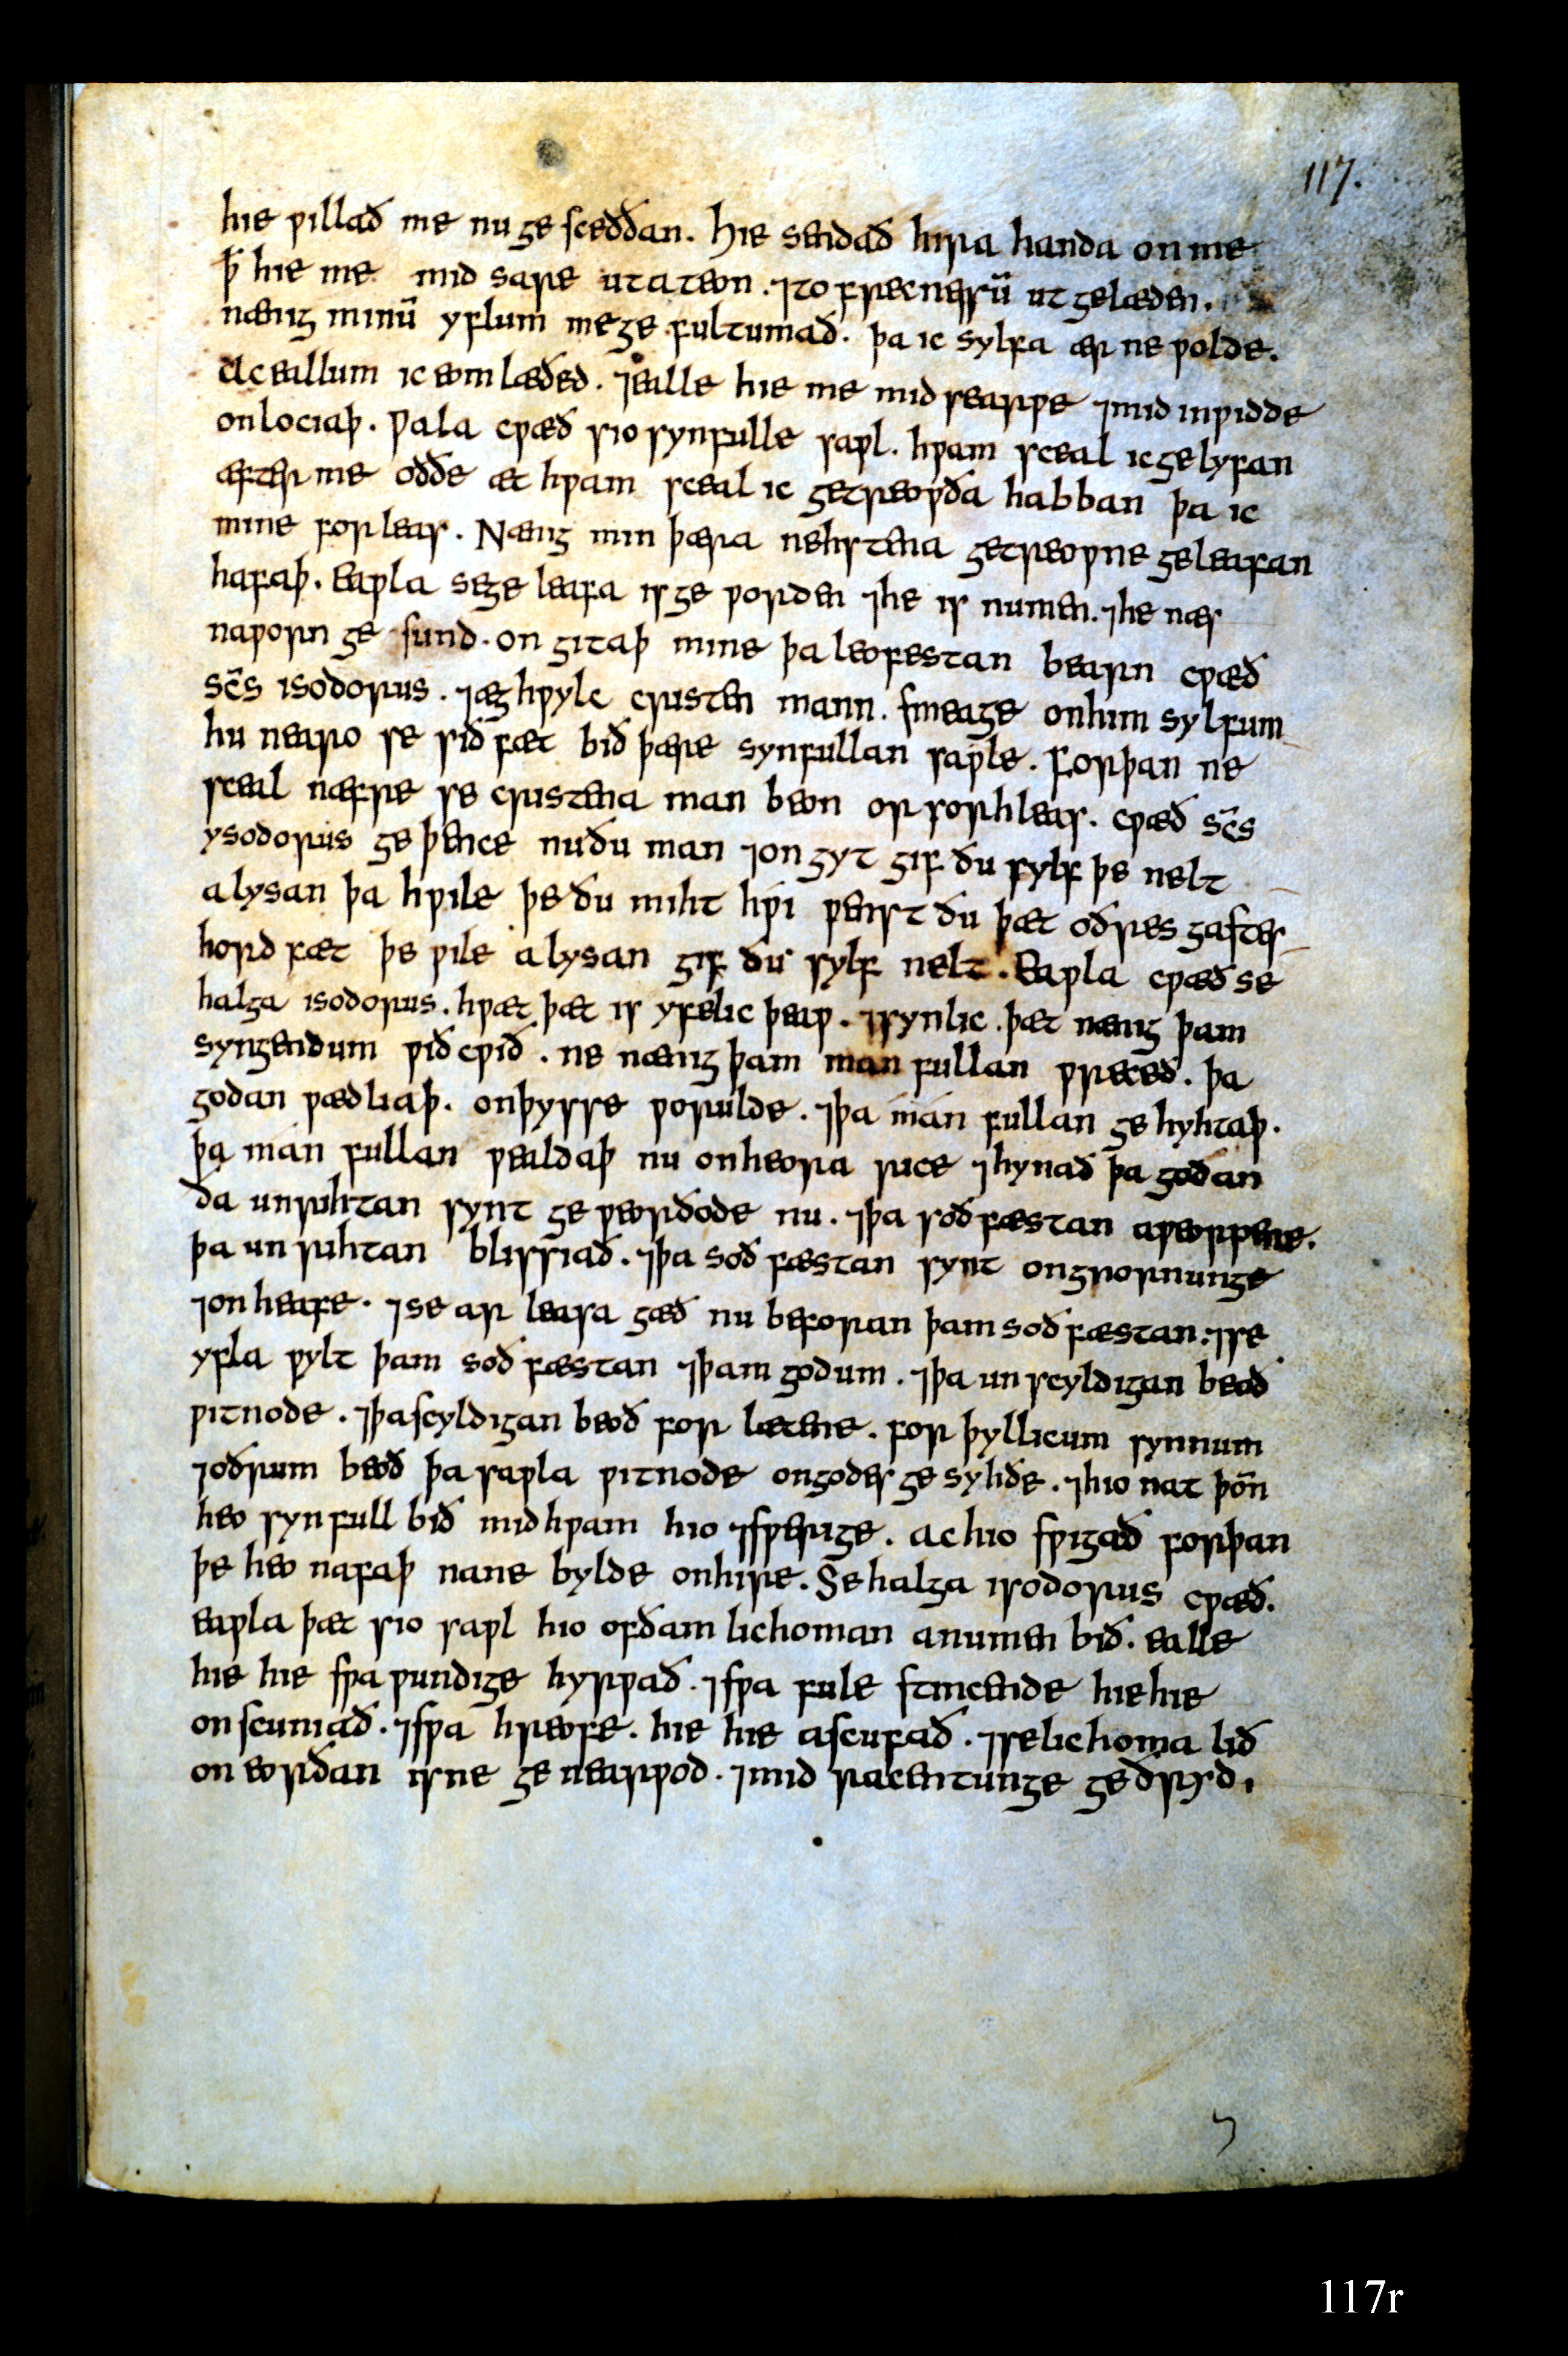 117.
hie ƿillað me nu ge sceððan. Hie sendað hira handa on me
þ̄ hie me mid sare ut ateon. ⁊to frecnessū ut gelæden.
nænig minū yflum me ge fultumað. þa ic sylfa ær ne ƿolde.
Ac eallum ic eom læðed. ⁊ealle hie me mid searƿe ⁊mid inƿidde
on lociaþ. Ƿala cƿæð sio synfulle saƿl. hƿam sceal ic gelyfan
æfter me oððe æt hƿam sceal ic getreoƿða habban þa ic
mine forleas. Nænig min þæra nehstena getreoƿne geleafan
hafaþ. Eaƿla se ge leafa is ge ƿorden ⁊he is numen. ⁊he næs
naƿorn ge sund. on gitaþ mine þa leofestan bearn cƿæð
sc̄s isodorus. ⁊æghƿylc cristen mann. smeage on him sylfum
hu nearo se sið fæt bið þære synfullan saƿle. Forþan ne
sceal næfre se cristena man beon or sorhleas. cƿæð sc̄s
ysodorus ge þence nu ðu man ⁊on gyt gif ðu sylf þe nelt
alysan þa hƿile þe ðu miht hƿi ƿenst ðu þæt oðres gaster
hord fæt þe ƿile alysan gif ðu sylf nelt. Eaƿla cƿæð se
halga isodorus. hƿæt þæt is yfelic þeaƿ. ⁊synlic. þæt nænig þam
syngendum ƿið cƿið. ne nænig þam man fullan ƿreceð. þa
godan ƿædliaþ. on þysse ƿorulde. ⁊þa mán fullan ge hyhtaþ.
þa mán fullan ƿealdaþ nu on heora rice ⁊hynað þa godan
ða unrihtan synt ge ƿeorðode nu. ⁊þa soð fæstan aƿeorpene.
þa un rihtan blissiað. ⁊þa soð fæstan synt on grornunge
⁊on heafe. ⁊se ar leasa gæð nu beforan þam soð fæstan. ⁊se
yfla ƿylt þam soð fæstan ⁊þam godum. ⁊þa un scyldigan beoð
ƿitnode. ⁊þa scyldigan beoð for lætene. for þyllicum synnum
⁊oðrum beoð þa saƿla ƿitnode on godes ge syhðe. ⁊hio nat þōn
heo synfull bið mid hƿam hio ⁊sƿerige. ac hio sƿigað forþan
þe heo nafaþ nane bylde on hire. Se halga isodorius cƿæð.
eaƿla þæt sio saƿl hio of ðam lichoman anumen bið. ealle
hie hie sƿa ƿundige hyrƿað. ⁊sƿa fule stincende hie hie
on scuniað. ⁊sƿa hreofe. hie hie ascufað. ⁊se lichoma lið
on eorðan isne ge nearƿod. ⁊mid racentunge ge ðryd,
117r